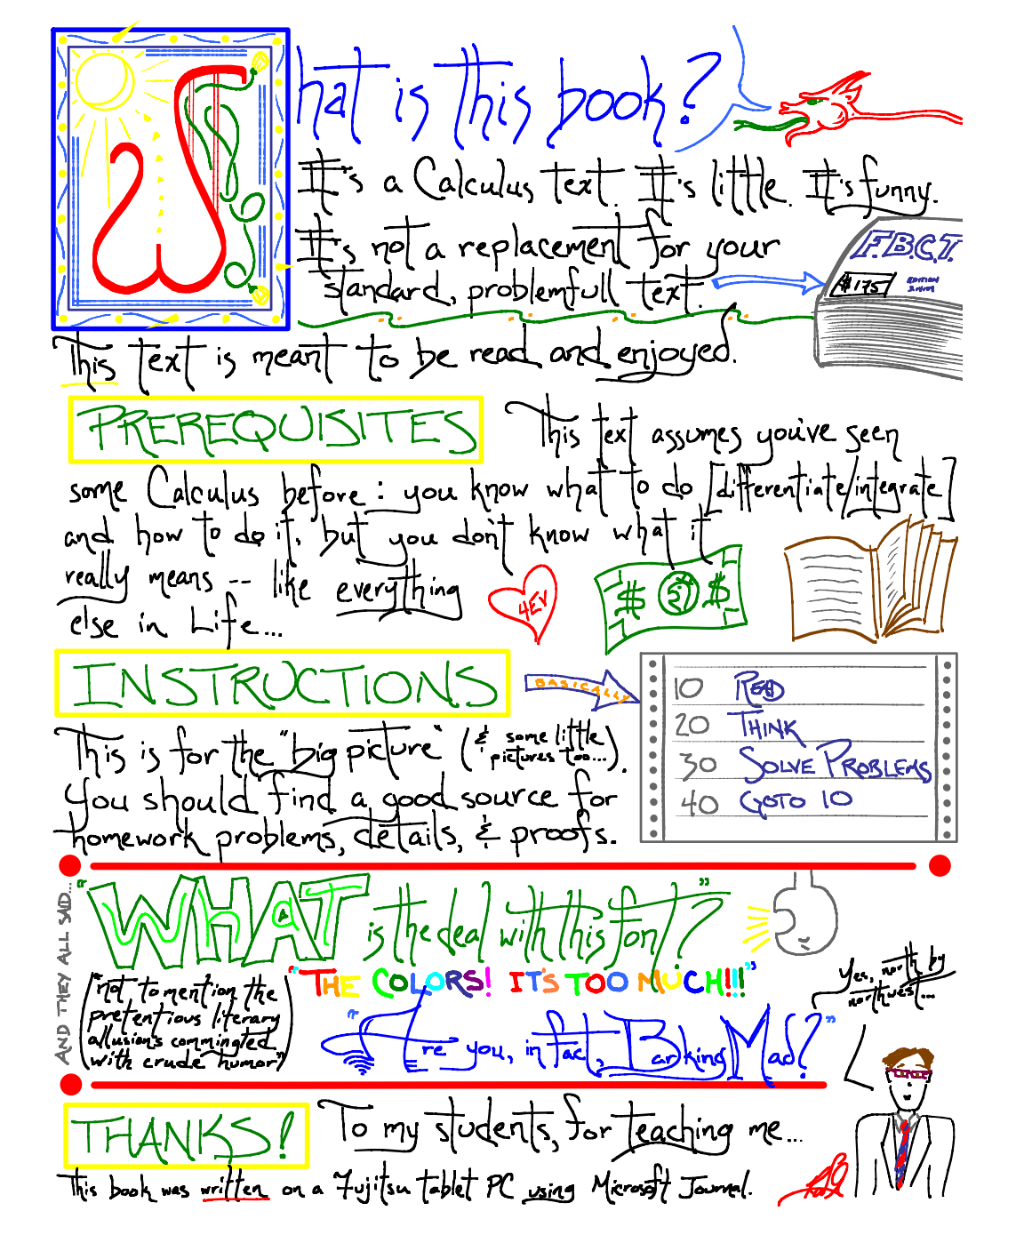 What is this book?
It's a Calculus text. It's little. It's funny.
It's not a replacement for your
standard, problemfull text.
F.B.C.T.
$175
EDITION
This text is meant to be read and enjoyed.
PREREQUISITES
This text assumes you've seen
some Calculus before: you know what to do [differentiate/integrate]
and how to do it, but you don't know what it
really means -- like everything
else in Life...
4EV
$ $
INSTRUCTIONS
BASICALLY
10 READ
20 THINK
30 SOLVE PROBLEMS
40 GOTO 10
This is for the "big picture" (& some little
pictures too...).
You should find a good source for
homework problems, details, & proofs.
AND THEY ALL SAID...
"WHAT is the deal with this font?"
"THE COLORS! IT'S TOO MUCH!!!"
("not to mention the
pretentious literary
allusions commingled
with crude humor")
"Are you, in fact, Barking Mad?"
Yes, north by
northwest...
THANKS!
To my students, for teaching me...
This book was written on a Fujitsu tablet PC using Microsoft Journal.